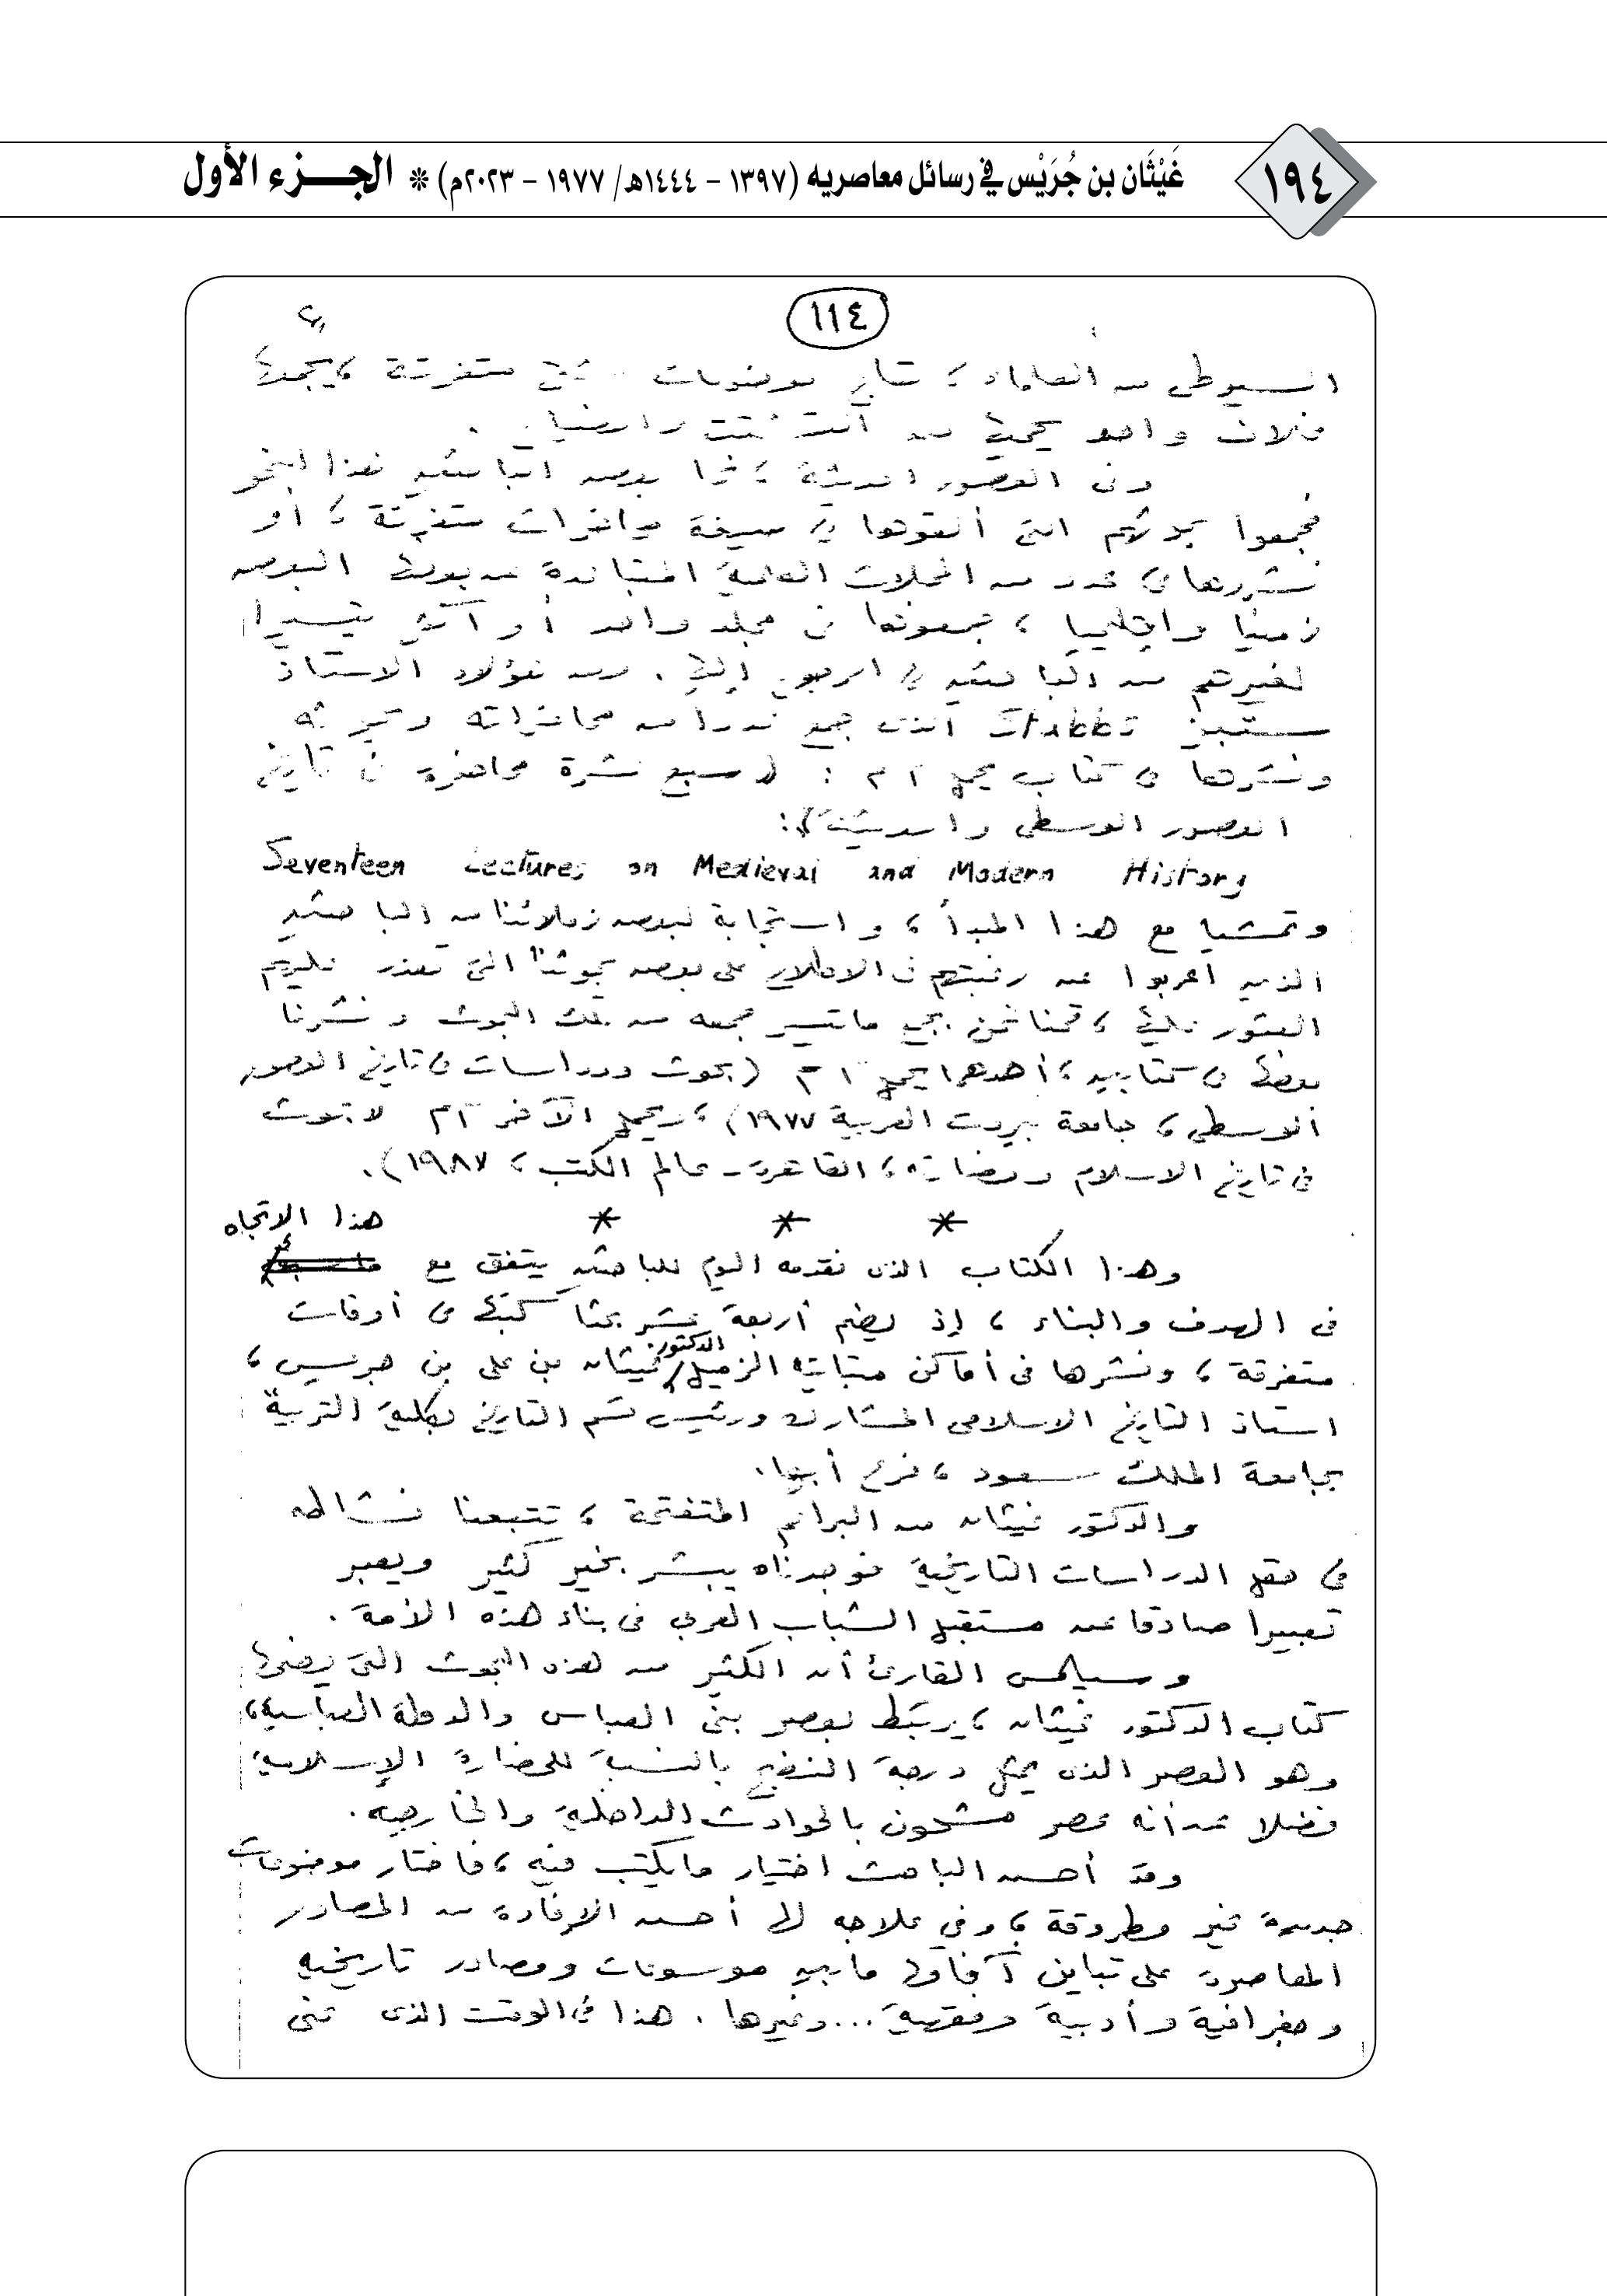 ١٩٤
غَيْثَان بن جُرَيْس في رسائل معاصريه (١٣٩٧ – ١٤٤٤هـ/ ١٩٧٧ – ٢٠٢٣م) ❊ الجـــزء الأول
١١٤
السيوطى من العلماء ؛ كتابه موضوعات متفرقة ، يجمعها
واحد يحميها من التشتت والضياع .
وفى العصور الحديثة ؛ نرى بعض الباحثين هذا النحو
فجمعوا بحوثهم التى ألقوها فى صيغة محاضرات متفرقة ؛ أو
نشروها فى عدد من المجلات العلمية المتباعدة عن بعضها البعض
زمنيا واقليميا ؛ يجمعونها فى مجلد واحد أو أكثر تيسيرا
لغيرهم من الباحثين فى الرجوع إليها . ومن هؤلاء الاستاذ
ستبز Stubbs الذى جمع عددا من محاضراته وبحوثه
ونشرها فى كتاب يحمل اسم : (سبع عشرة محاضرة فى تاريخ
العصور الوسطى والحديثة) :
Seventeen Lectures on Medieval and Modern History
وتمشيا مع هذا المبدأ ؛ واستجابة لبعض زملائنا من الباحثين
الذين أعربوا عن رغبتهم فى الاطلاع على بعض بحوثنا التى تعذر عليهم
العثور عليها ؛ قمنا نحن بجمع ما تيسر جمعه من تلك البحوث ونشرنا
بعضها فى كتابين ؛ أحدهما يحمل اسم (بحوث ودراسات فى تاريخ العصور
الوسطى ؛ جامعة بيروت العربية ١٩٧٧) ؛ ويحمل الآخر اسم (بحوث
فى تاريخ الاسلام وحضارته ؛ القاهرة - عالم الكتب ؛ ١٩٨٧).
* * *
هذا الاتجاه
وهذا الكتاب الذى نقدمه اليوم للباحثين يتفق مع
فى الهدف والبناء ؛ إذ يضم أربعة عشر بحثا كتبها فى أوقات
متفرقة ؛ ونشرها فى أماكن متباينة الزميل الدكتور/ غيثان بن على بن جريس ؛
استاذ التاريخ الاسلامى المشارك ورئيس قسم التاريخ بكلية التربية
بجامعة الملك سعود ؛ فرع أبها.
والدكتور غيثان من البراعم المتفتحة ؛ تتبعنا نشاطه
فى حقل الدراسات التاريخية فوجدناه يبشر بخير كثير ويعبر
تعبيرا صادقا عن مستقبل الشباب العربى فى بناء هذه الأمة .
وسيلمس القارئ أن الكثير من هذه البحوث التى يضمها
كتاب الدكتور غيثان ؛ يرتبط بعصر بنى العباس والدولة العباسية ؛
وهو العصر الذى يمثل درجة النضج بالنسبة للحضارة الإسلامية ؛
فضلا عن أنه عصر مشحون بالحوادث الداخلية والخارجية .
وقد أحسن الباحث اختيار ما يكتب فيه ؛ فاختار موضوعات
جديدة غير مطروقة ؛ وفى علاجه لها أحسن الإفادة من المصادر
المعاصرة على تباين آفاقها ما بين موسوعات ومصادر تاريخية
وجغرافية وأدبية وفقهية ... وغيرها . هذا فى الوقت الذى عنى